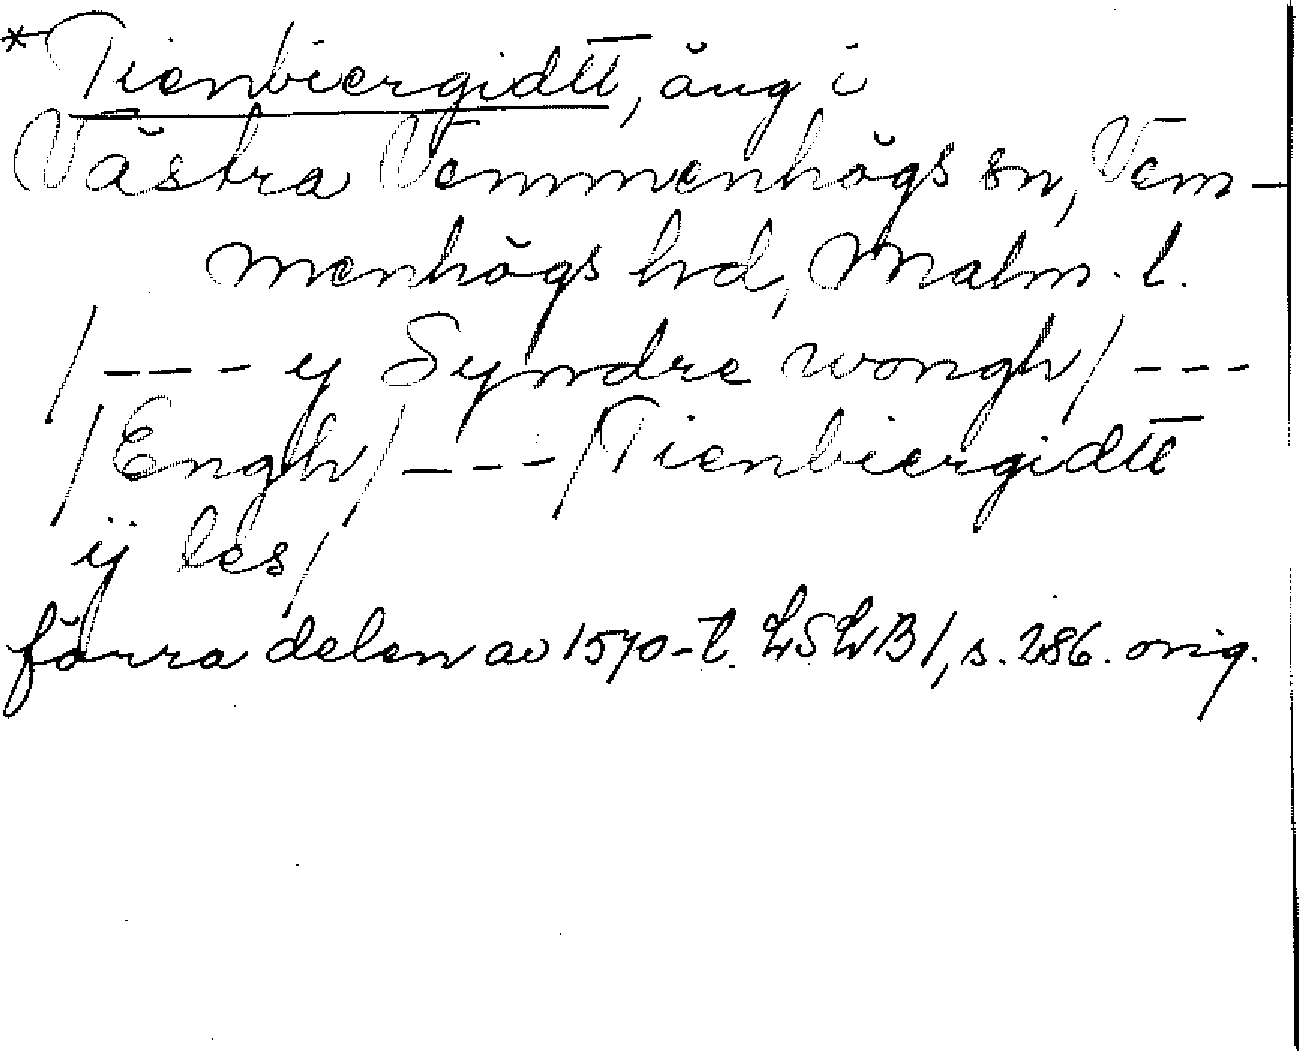 *Tienbiergidtt, äng i
Västra Vemmenhögs sn, Vem-
menhögs hd, Malm. l.
/--- y Syndre wongh/ ---
/Engh/ --- /Tienbiergidtt
ÿ les/
förra delen av 1570-t. LSLB1, s. 286. orig.